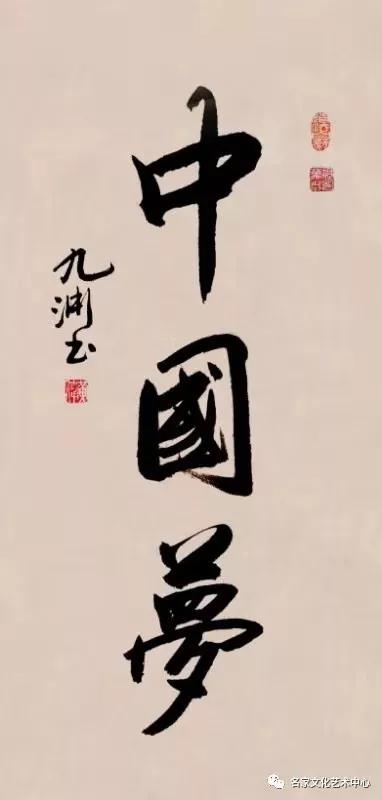 中國夢
九渊书
名家文化艺术中心